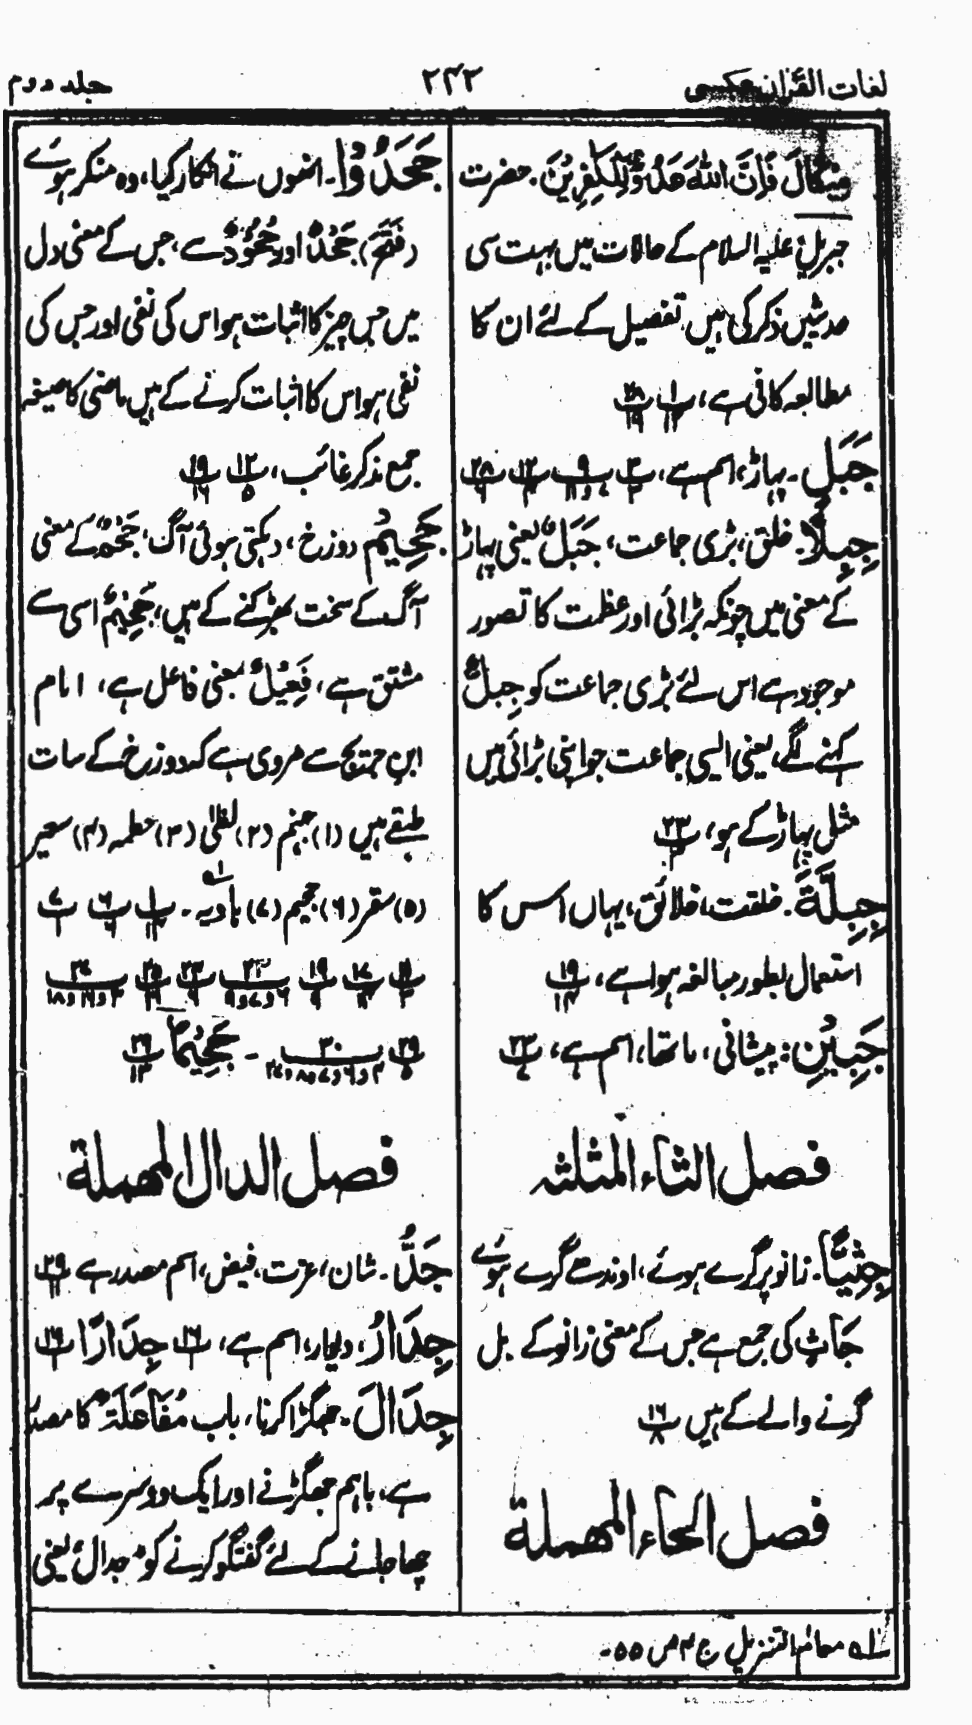 لغات القرآن عکسی
۲۴۲
جلد دوم
مِيْكٰىلَ فَاِنَّ اللهَ عَدُوٌّ لِّلْكٰفِرِيْنَ. حضرت
جبریل علیہ السلام کے حالات میں بہت سی
حدیثیں ذکر کی ہیں تفصیل کے لئے ان کا
مطالعہ کافی ہے،
جَبَل۔ پہاڑ، اسم ہے،
جِبِلًّا۔ خلق، بڑی جماعت، جَبَلٌ یعنی پہاڑ
کے معنی میں چونکہ بڑائی اور عظمت کا تصور
موجود ہے اس لئے بڑی جماعت کو جِبِلٌّ
کہنے لگے، یعنی ایسی جماعت جو اپنی بڑائی میں
مثل پہاڑ کے ہو،
جِبِلَّةَ۔ خلقت، خلائق، یہاں اس کا
استعمال بطور مبالغہ ہوا ہے،
جَبِيْنِ: پیشانی، ماتھا، اسم ہے،
فصل الثاء المثلثہ
جِثِيًّا۔ زانو پر گرے ہوئے، اوندھے گرے ہوئے
جَاثٍ کی جمع ہے جس کے معنی زانو کے بل
گرنے والے کے ہیں
فصل الحاء المهملة
جَحَدُوْا۔ انہوں نے انکار کیا، وہ منکر ہوئے
(فَتَحَ) جَحْدٌ اور جُحُوْدٌ سے، جس کے معنی دل
میں جس چیز کا اثبات ہو اس کی نفی اور جس کی
نفی ہو اس کا اثبات کرنے کے ہیں ماضی کا صیغہ
جمع مذکر غائب،
جَحِيْمٌ۔ دوزخ، دہکتی ہوئی آگ، جَحْمٌ کے معنی
آگ کے سخت بھڑکنے کے ہیں، جَحِيْمٌ اسی سے
مشتق ہے، فَعِيْلٌ بمعنی فاعل ہے، امام
ابن جریج سے مروی ہے کہ دوزخ کے سات
طبقے ہیں (۱) جہنم (۲) لظٰی (۳) حطمہ (۴) سعیر
(۵) سقر (۶) جحیم (۷) ہاویہ۔
جَحِيْمًا
فصل الدال المهملة
جَدُّ۔ شان، عزت، فیض، اسم مصدر ہے
جِدَارُ، دیوار، اسم ہے، جِدَارًا
جِدَالَ۔ جھگڑا کرنا، باب مُفَاعَلَةٌ کا مصدر
ہے، باہم جھگڑنے اور ایک دوسرے پر
چھا جانے کے لئے گفتگو کرنے کو جدالٌ یعنی
لہ معالم التنزیل ج ۴ ص ۵۵۔